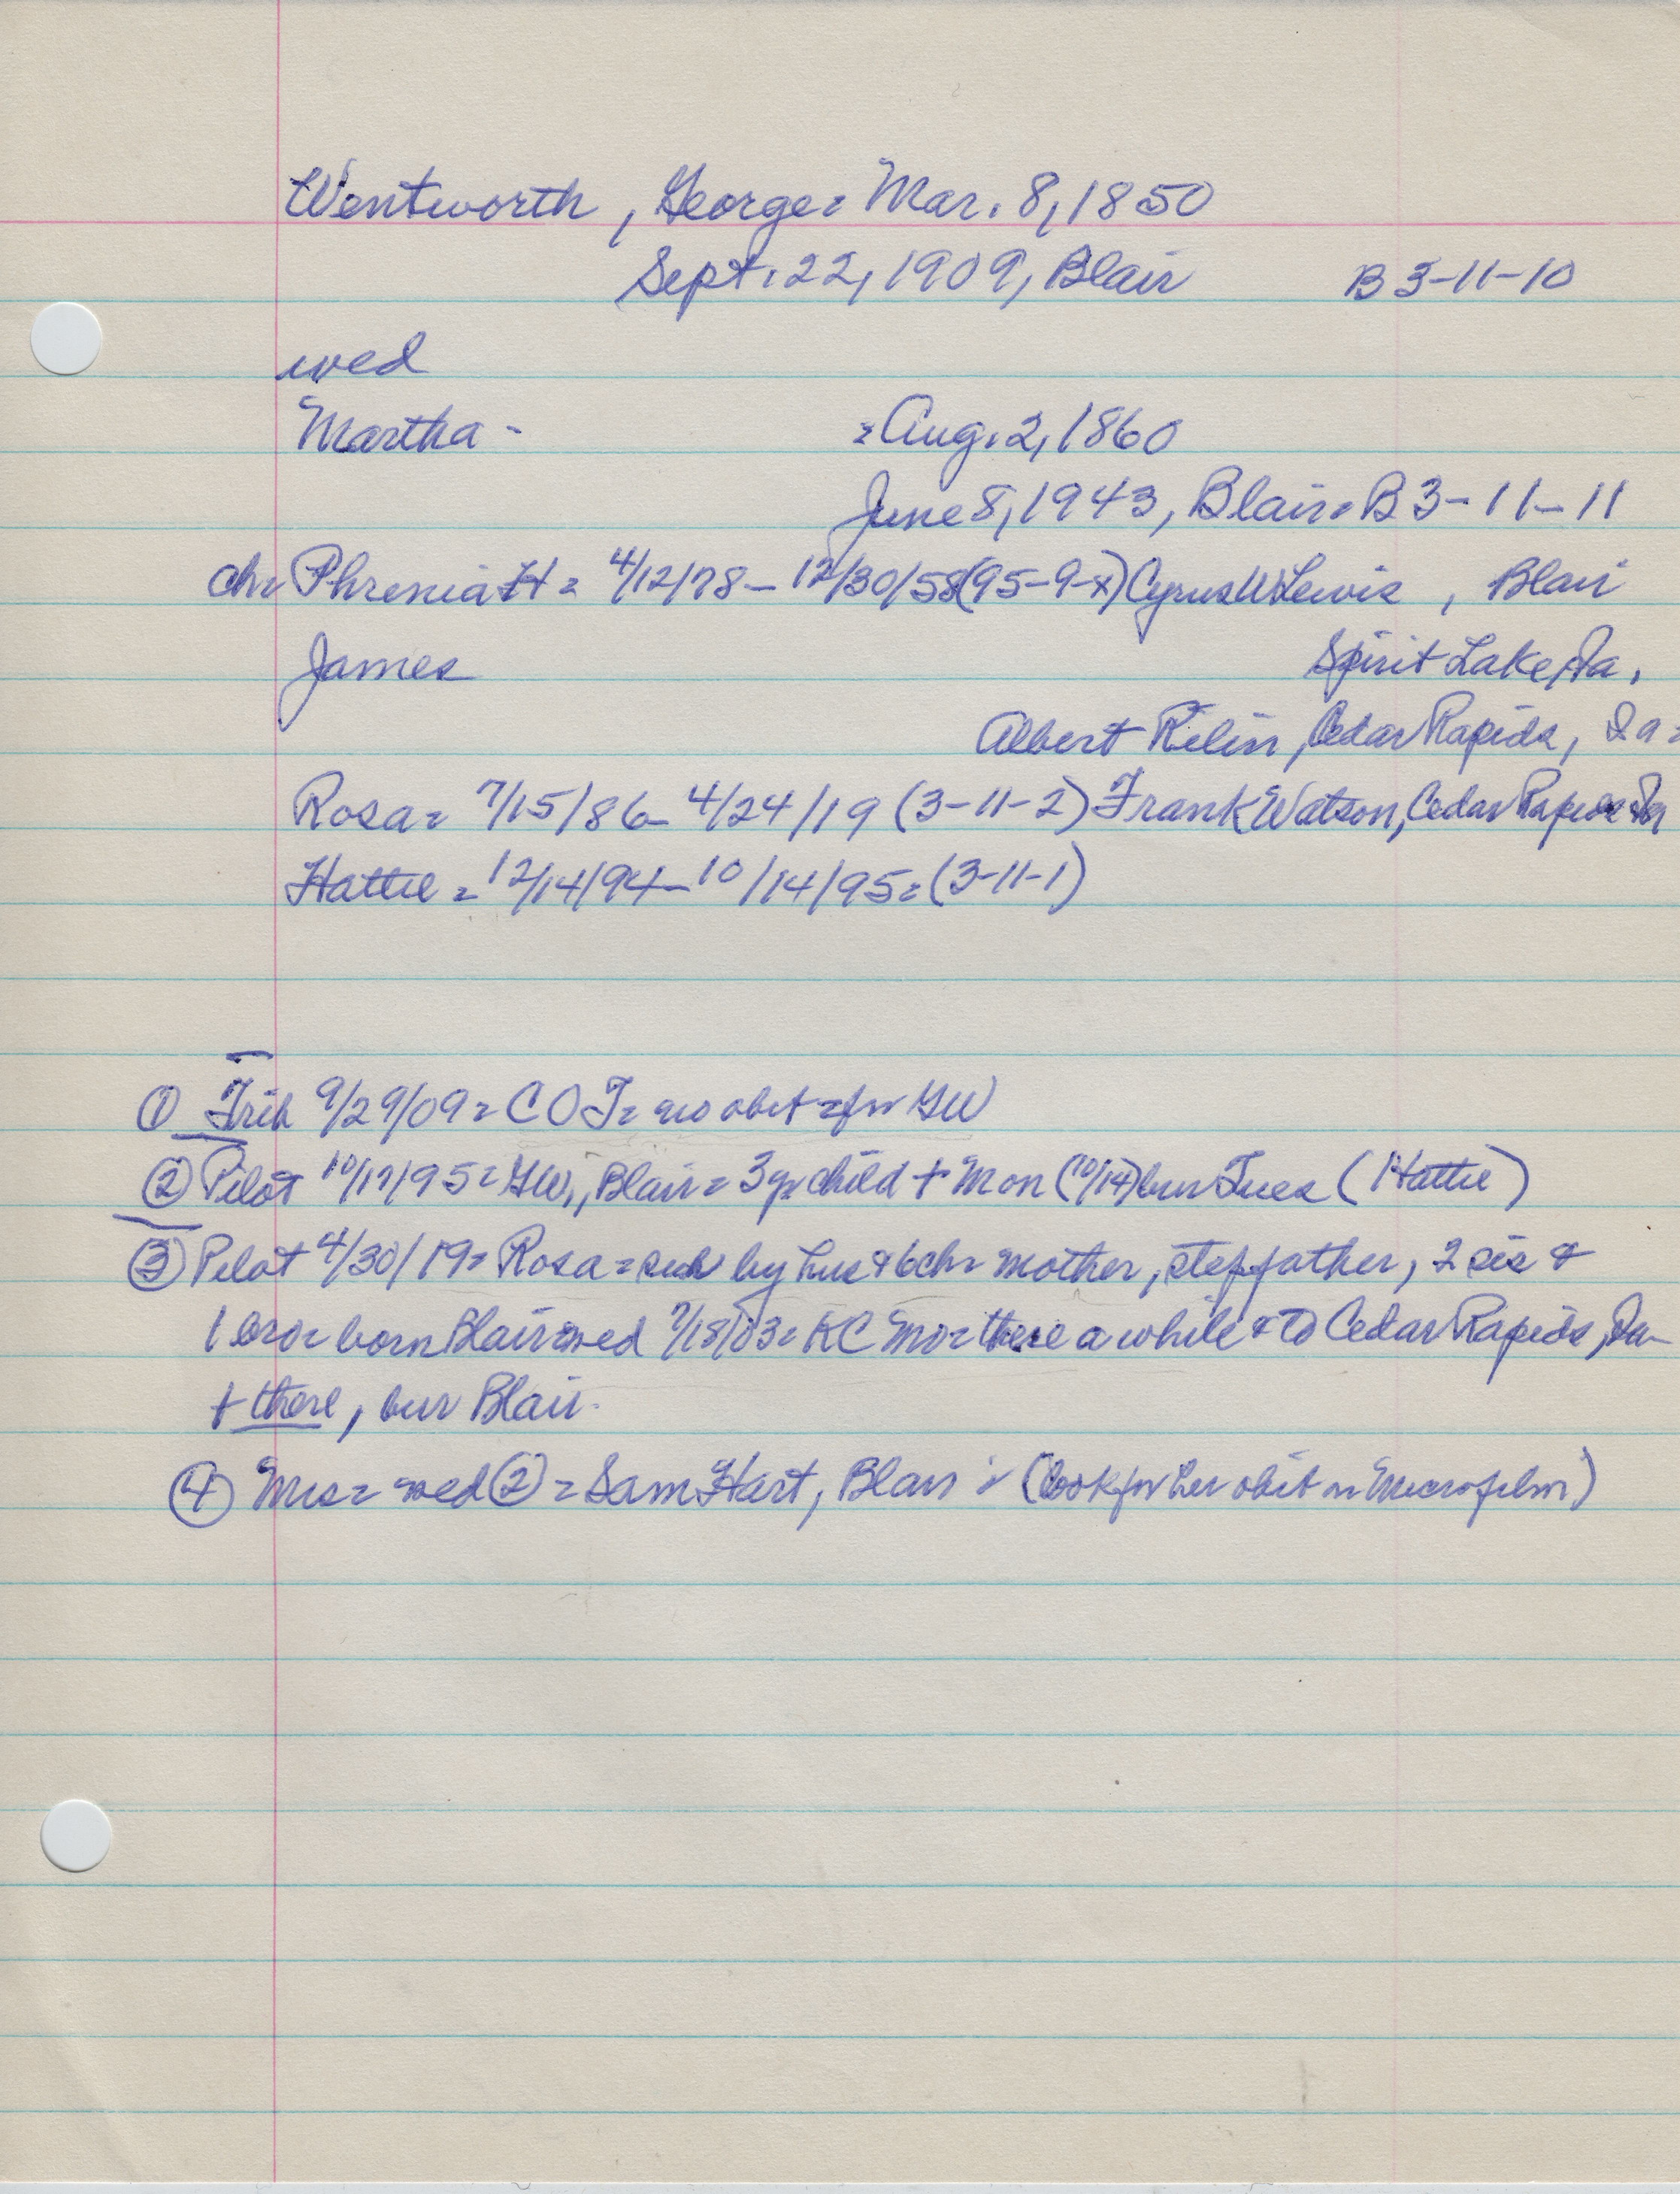 Wentworth, George = Mar. 8, 1850
Sept. 22, 1909, Blair B 3-11-10
wed
Martha - = Aug. 2, 1860
June 8, 1943, Blair = B 3-11-11
ch = Phrenia H = 4/12/78 - 12/30/58 (95-9-x) Cyrus W Lewis, Blair
James Spirit Lake, Ia.
Albert Cedar Rapids, Ia =
Rosa = 7/15/86 - 4/24/19 (3-11-2) Frank Watson, Cedar Rapids Ia
Hattie = 12/14/94 - 10/14/95 = (3-11-1)
① Trib 9/29/09 = C O T = no obit = for GW
② Pilot 10/17/95 = GW, Blair = 3 yr child + Mon (10/14) bur Tues (Hattie)
③ Pilot 4/30/19 = Rosa = sur by hus & 6 ch = mother, stepfather, 2 sis &
1 bro = born Blair = wed 7/15/03 = KC Mo = there a while & to Cedar Rapids, Ia -
+ there, bur Blair.
④ Mrs = wed ② = Sam Hart, Blair = (look for her obit on Microfilm)